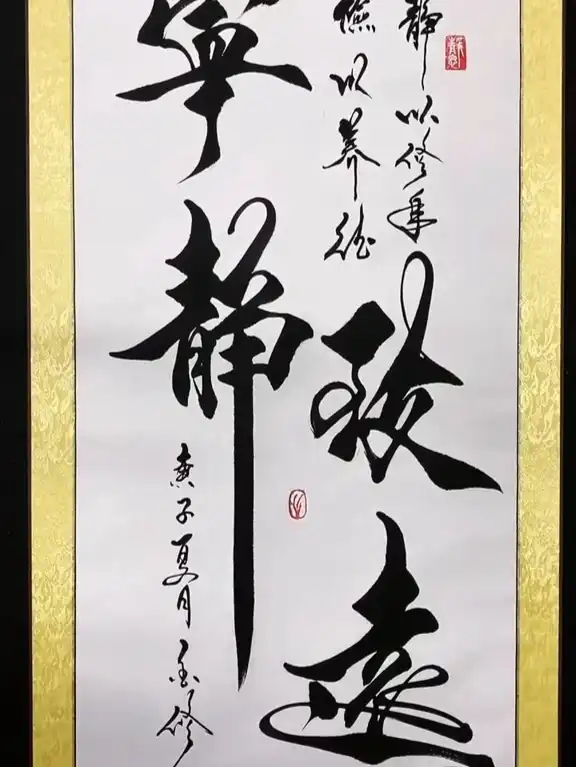 靜以修身
儉以養德
寧靜
致遠
庚子夏月